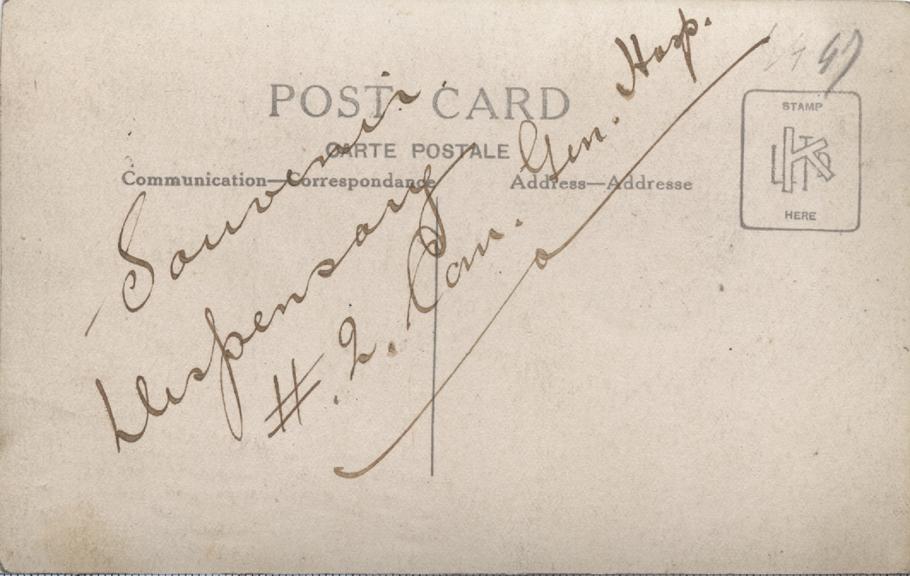 47
POST CARD
CARTE POSTALE
Communication—Correspondance
Address—Addresse
STAMP
K
HERE
Souvenir
Dispensary
# 2. Can. Gen. Hosp.